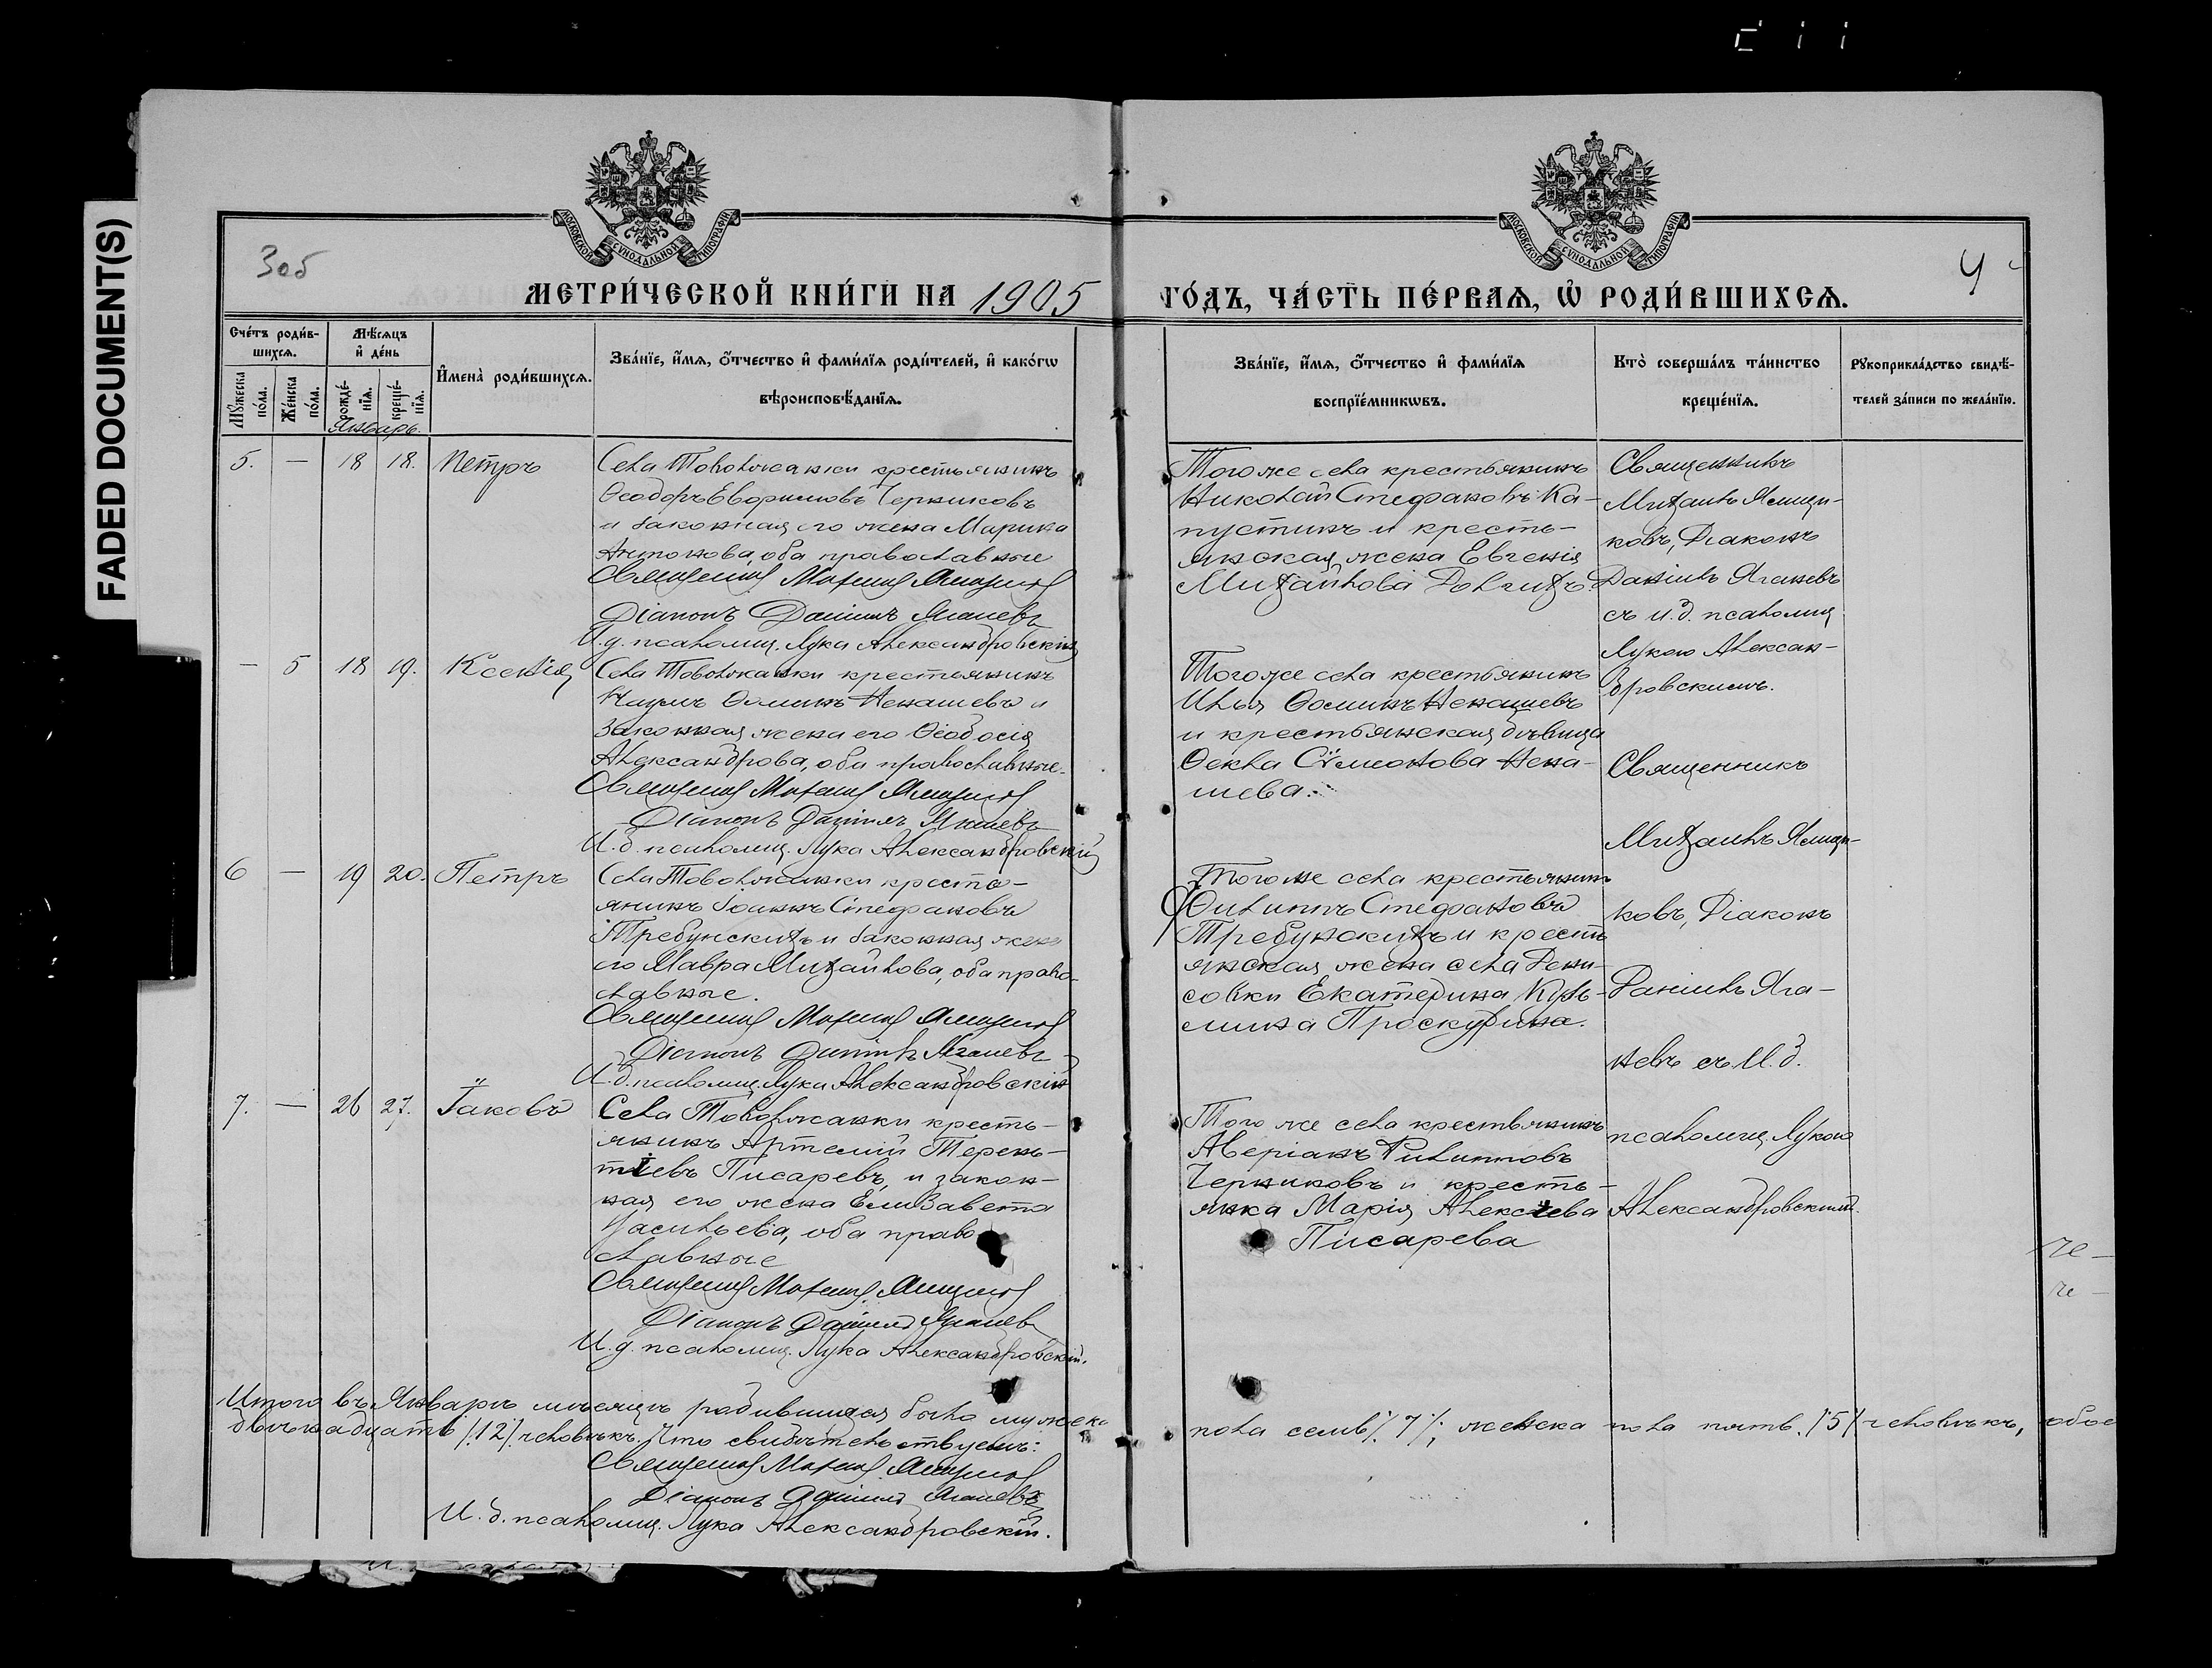 FADED DOCUMENT(S)
3об
4
МОСКОВСКОЙ СѴНОДАЛЬНОЙ ТИПОГРАФІИ
МОСКОВСКОЙ СѴНОДАЛЬНОЙ ТИПОГРАФІИ
МЕТРИ́ЧЕСКОЙ КНИ́ГИ НА 1905 ГО́ДЪ, ЧА́СТЬ ПЕ́РВАѦ, Ѡ҆ РОДИ́ВШИХСѦ.
Сче́тъ роди́в-
шихсѧ.
Мꙋ́жеска
по́ла.
Же́нска
по́ла.
Мѣ́сѧцъ
и҆ де́нь
рожде́-
нїѧ.
креще́-
нїѧ.
И҆мена̀ роди́вшихсѧ.
Зва́нїе, и҆́мѧ, ѻ҆́тчество и҆ фами́лїѧ роди́телей, и҆ како́гѡ
вѣроисповѣ́данїѧ.
Зва́нїе, и҆́мѧ, ѻ҆́тчество и҆ фами́лїѧ
воспрїе́мникѡвъ.
Кто̀ соверша́лъ та́инство
креще́нїѧ.
Рꙋкоприкла́дство свидѣ́-
телей за́писи по жела́нїю.
Январь.
5. — 18 18. Петръ
Села Товолжанки крестьянинъ
Ѳеодоръ Евфимовъ Черниковъ
и законная его жена Марина
Антонова, оба православные
Священникъ Михаилъ Ямщиковъ
Діаконъ Даніилъ Яганевъ
И.д. псаломщ. Лука Александровскій
Того же села крестьянинъ
Николай Стефановъ Ка-
пустинъ и кресть-
янская жена Евгенія
Михайлова Долгихъ.
Священникъ
Михаилъ Ямщи-
ковъ, Діаконъ
Даніилъ Яганевъ
съ и.д. псаломщ.
Лукою Алексан-
дровскимъ.
— 5 18 19. Ксенія
Села Товолжанки крестьянинъ
Наумъ Ѳоминъ Ненашевъ и
законная жена его Ѳеодосія
Александрова, оба православные.
Священникъ Михаилъ Ямщиковъ
Діаконъ Даніилъ Яганевъ
И.д. псаломщ. Лука Александровскій
Того же села крестьянинъ
Илья Ѳоминъ Ненашевъ
и крестьянская дѣвица
Ѳекла Сѵмеонова Нена-
шева.
Священникъ
Михаилъ Ямщи-
ковъ, Діаконъ
Даніилъ Яга-
невъ съ И.д.
псаломщ. Лукою
Александровскимъ.
6 — 19 20. Петръ
Села Товолжанки кресть-
янинъ Іоаннъ Стефановъ
Требунскихъ и законная жена
его Мавра Михайлова, оба право-
славные.
Священникъ Михаилъ Ямщиковъ
Діаконъ Даніилъ Яганевъ
И.д. псаломщ. Лука Александровскій
Того же села крестьянинъ
Филиппъ Стефановъ
Требунскихъ и кресть
янская жена села Дени-
совки Екатерина Кузь-
мина Проскурина.
7. — 26 27. Іаковъ
Села Товолжанки кресть-
янинъ Артемій Терень-
тіевъ Писаревъ, и закон-
ная его жена Елизавета
Васильева, оба право
славные
Священникъ Михаилъ Ямщиковъ
Діаконъ Даніилъ Яганевъ
И.д. псаломщ. Лука Александровскій.
Того же села крестьянинъ
Аверіанъ Филипповъ
Черниковъ и кресть-
янка Марія Алексіева
Писарева
Итого въ Январѣ мѣсяцѣ родившихся было мужска пола семь /7/, женска пола пять /5/ человѣкъ, обое
двѣнадцать /12/ человѣкъ. Что свидѣтельствуемъ:
Священникъ Михаилъ Ямщиковъ
Діаконъ Даніилъ Яганевъ
И.д. псаломщ. Лука Александровскій.